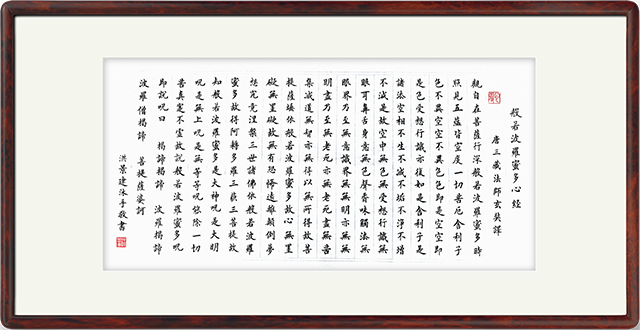 般若波羅蜜多心經
唐三藏法師玄奘譯
觀自在菩薩行深般若波羅蜜多時
照見五蘊皆空度一切苦厄舍利子
色不異空空不異色色即是空空即
是色受想行識亦復如是舍利子是
諸法空相不生不滅不垢不淨不增
不減是故空中無色無受想行識無
眼耳鼻舌身意無色聲香味觸法無
眼界乃至無意識界無無明亦無無
明盡乃至無老死亦無老死盡無苦
集滅道無智亦無得以無所得故菩
提薩埵依般若波羅蜜多故心無罣
礙無罣礙故無有恐怖遠離顛倒夢
想究竟涅槃三世諸佛依般若波羅
蜜多故得阿耨多羅三藐三菩提故
知般若波羅蜜多是大神呪是大明
呪是無上呪是無等等呪能除一切
苦真實不虛故說般若波羅蜜多呪
即說呪曰 揭諦揭諦 波羅揭諦
波羅僧揭諦 菩提薩婆訶
洪景建沐手敬書